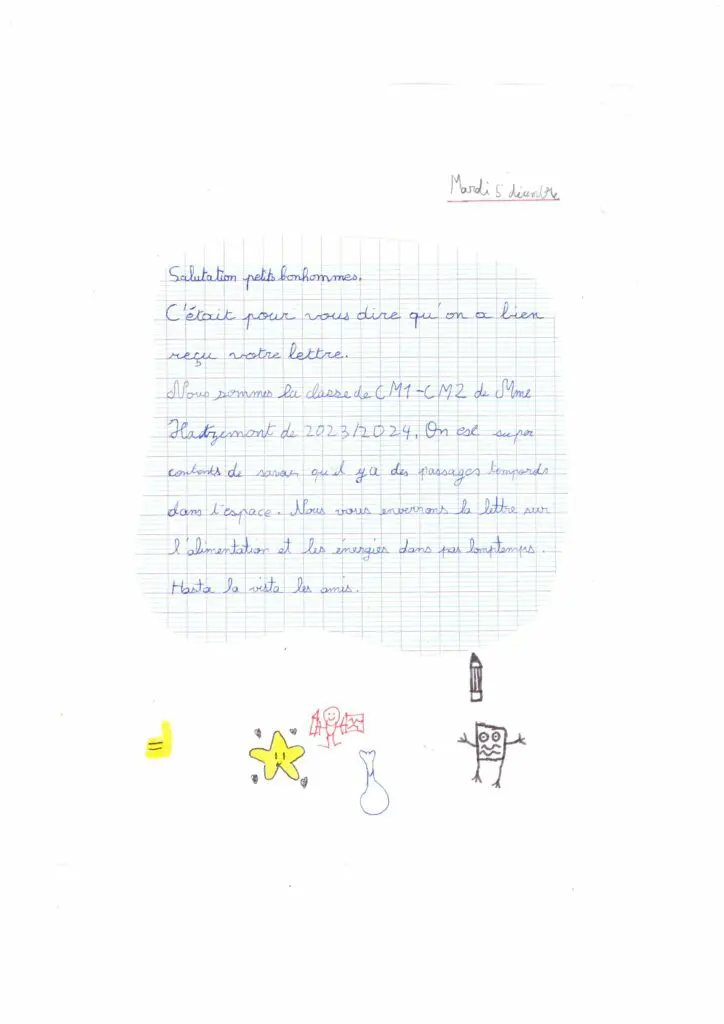 Mardi 5 décembre
Salutation petits bonhommes.
C'était pour vous dire qu'on a bien
reçu votre lettre.
Nous sommes la classe de CM1-CM2 de Mme
de 2023/2024. On est super
contents de savoir qu'il y a des passages
dans l'espace. Nous vous enverrons la lettre sur
l'alimentation et les énergies dans pas lomptemps.
Hasta la vista les amis.